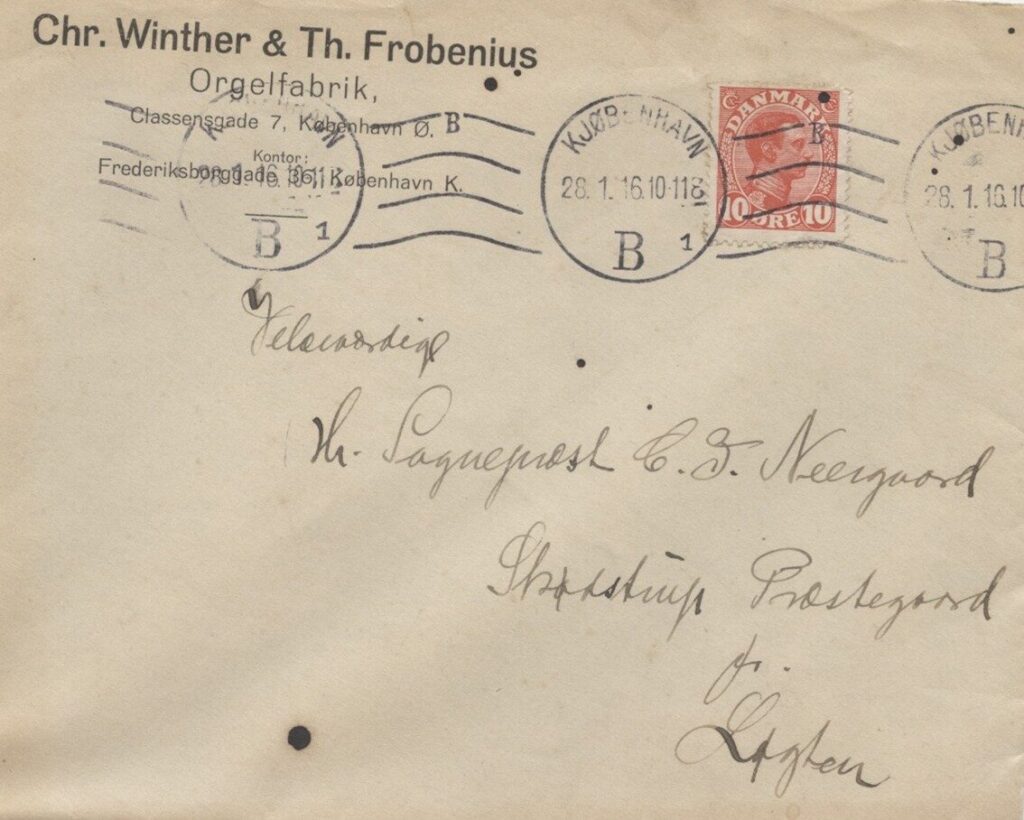 Chr. Winther & Th. Frobenius
Orgelfabrik,
Classensgade 7, København Ø.
Kontor:
Frederiksborggade 36, København K.
KJØBENHAVN
28.1.16.10-11
B 1
B
KJØBENHAVN
28.1.16.10-11
B 1
DANMARK
10 ØRE 10
B
KJØBENH
28.1.16.10
B
Velærværdige
Hr. Sognepræst C. Neergaard
Skødstrup Præstegaard
pr.
Løgten